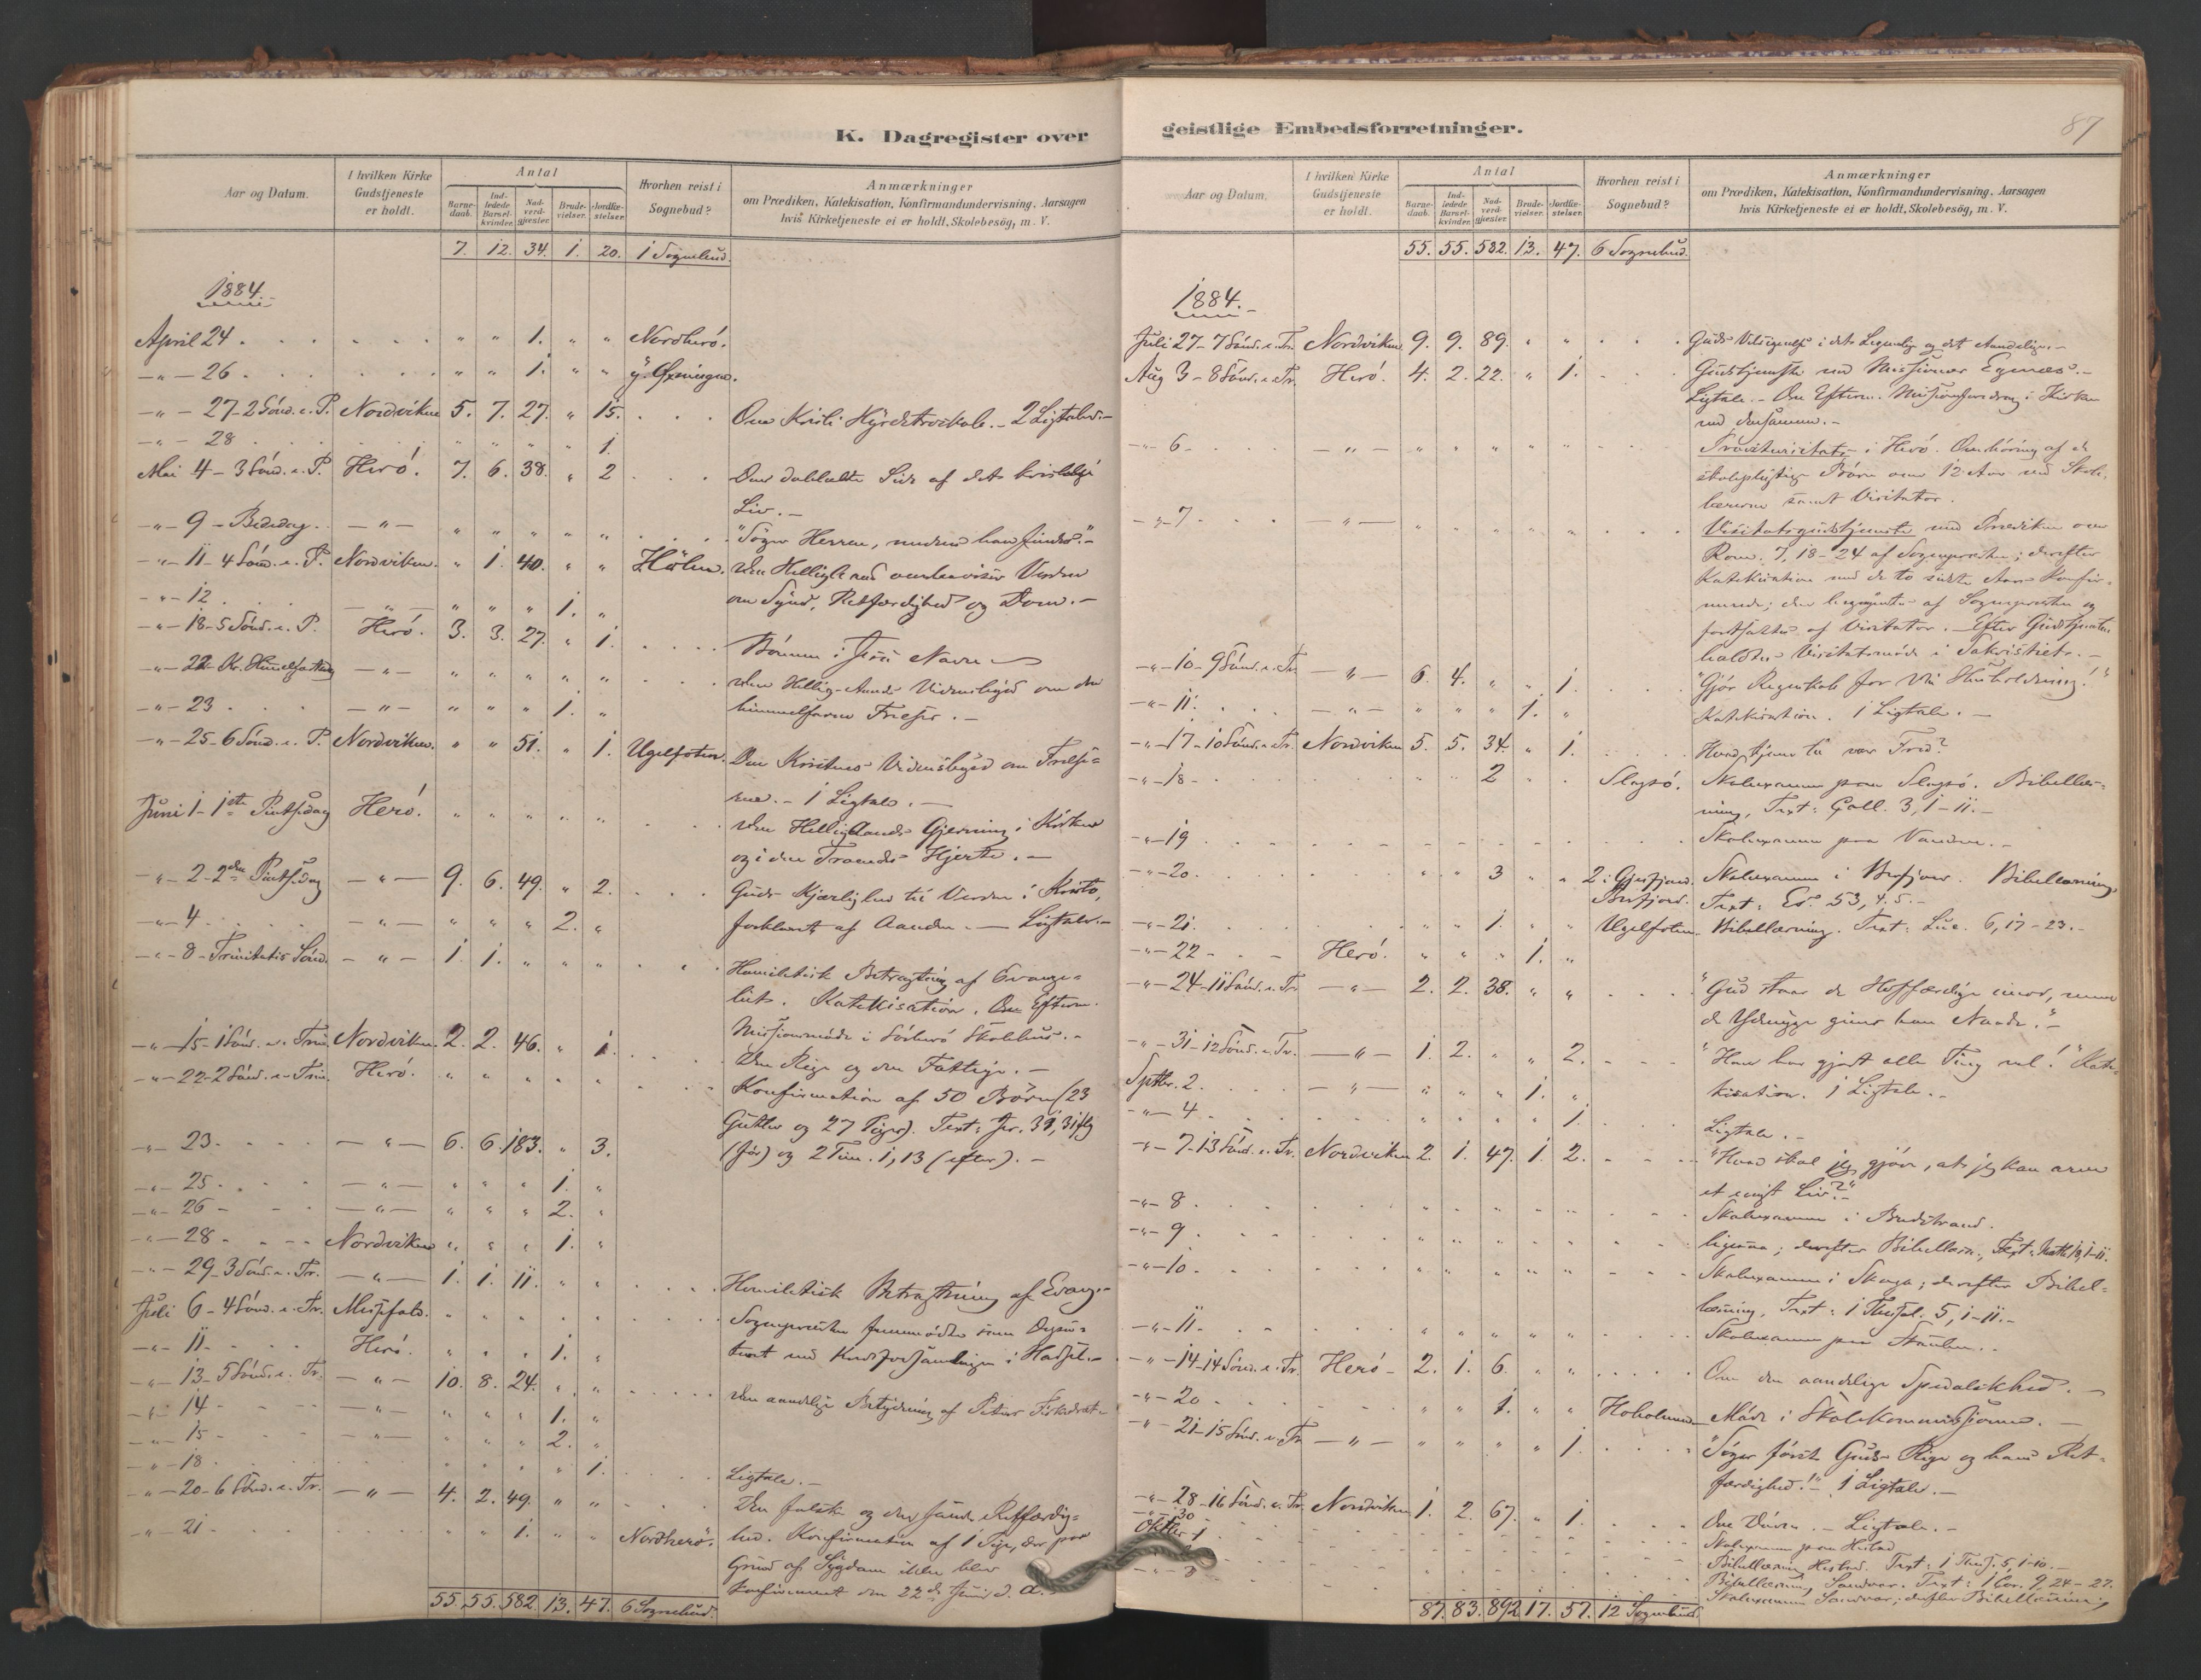 K. Dagregister over
Aar og Datum.
I hvilken Kirke Gudstjeneste er holdt.
Antal
Barne-daab.
Ind-ledede Barsel-kvinder.
Nad-verd-gjester.
Brude-vielser.
Jordfæ-stelser.
Hvorhen reist i Sognebud?
Anmærkninger
om Prædiken, Katekisation, Konfirmandundervisning. Aarsagen
hvis Kirketjeneste ei er holdt, Skolebesög, m. V.
7. 12. 34. 1. 20. 1 Sognebud.
1884.
April 24 . " " 1. " " Nordherö.
-"- 26 . " " 1. " "
-"- 27 - 2 Sönd. e. P. Nordviken 5. 7. 27. " 15. Om Kristi Hyrdetroskab. - 2 Ligtaler. -
-"- 28 . " " " " 1.
Mai 4 - 3 Sönd. e. P. Herö. 7. 6. 38. " 2 Den dobbelte Side af det kristelige
Liv. -
-"- 9 - Bededag. -"- " " " " " "Söger Herren, medens han findes". -
-"- 11 - 4 Sönd. e. P. Nordviken. " 1. 40. " " Holm. Den Hellig Aand overbeviser Verden
-"- 12 . -"- " " " 1. " om Synd, Retfærdighed og Dom. -
-"- 18 - 5 Sönd. e. P. Herö. 3. 3. 27. " 1. Bönnen i Jesu Navn
-"- 22 Kr. Himmelfartsdag -"- " " " " " Den Hellig-Aands Vidnesbyrd om den
-"- 23 . -"- " " " 1. " himmelfarne Frelser. -
-"- 25 - 6 Sönd. e. P. Nordviken. " " 51. " 1. Ugelfoten. Den Kristnes Vidnesbyrd om Frelse-
ren. - 1 Ligtale. -
Juni 1 - 1ste Pintsedag Herö. " " " " " Den Hellig Aands Gjerning i Kirken
og i den Troendes Hjerte. -
-"- 2 - 2den Pintsedag -"- 9. 6. 49. " 2. Guds Kjærlighed til Verden i Kristo,
-"- 4 . -"- " " " 2. " forklaret af Aanden. - Ligtale. -
-"- 8 - Trinitatis Sönd. -"- 1. 1. " " " Homiletisk Betragtning af Evange-
liet. Katekisation. Om Efterm.
Missionsmöde i Sörherö Skolehus. -
-"- 15 - 1 Sönd. e. Trin. Nordviken. 2. 2. 46. " 1. Den Rige og den Fattige. -
-"- 22 - 2 Sönd. e. Trin. Herö. " " " " " Konfirmation af 50 Börn (23
Gutter og 27 Piger). Text: Jer. 31, 31 flg
-"- 23 . -"- 6. 6. 183. " 3. (för) og 2 Tim. 1, 13 (efter). -
-"- 25 . -"- " " " 1. "
-"- 26 - -"- " " " 2. "
-"- 28 . Nordviken " " " 1. "
-"- 29 - 3 Sönd. e. Tr. -"- 1. 1. 11. " " Homiletisk Betragtning af Evang. -
Juli 6 - 4 Sönd. e. Tr. Messefald. " " " " " Sognepresten
-"- 11 . Herö. " " " 1. " i Hadsel. -
-"- 13 - 5 Sönd. e. Tr. -"- 10. 8. 24. " " Den aandelige Betydning af Peters Fiskedræt. -
-"- 14 - -"- " " " 1. "
-"- 15 - -"- " " " 2. "
-"- 18 " " " " 1. Ligtale. -
-"- 20 - 6 Sönd. e. Tr. -"- 4. 2. 49. " " Den falske og den sande Retfærdig-
-"- 21 . " " 1. " " Nordherö. hed. Konfirmation af 1 Pige, der paa
Grund af Sygdom ikke blev
konfirmeret den 22de Juni d. A. -
55. 55. 582. 13. 47. 6 Sognebud.
geistlige Embedsforretninger.
87
Aar og Datum.
I hvilken Kirke Gudstjeneste er holdt.
Antal
Barne-daab.
Ind-ledede Barsel-kvinder.
Nad-verd-gjester.
Brude-vielser.
Jordfæ-stelser.
Hvorhen reist i Sognebud?
Anmærkninger
om Prædiken, Katekisation, Konfirmandundervisning. Aarsagen
hvis Kirketjeneste ei er holdt, Skolebesög, m. V.
55. 55. 582. 13. 47. 6 Sognebud.
1884. -
Juli 27 - 7 Sönd. e. Tr. Nordviken 9. 9. 89. " " Guds Velsignelse i det Legemlige og det Aandelige. -
Aug 3 - 8 Sönd. e. Tr. Herö. 4. 2. 22. " 1. Gudstjeneste med Missionær Egenæs. -
Ligtale. - Om Efterm. Missionsforedrag i Kirken
ved densamme. -
-"- 6 . -"- " " " " " Provstevisitats i Herö. Overhöring af de
skolepligtige Börn over 12 Aar ved Skole-
lærerne samt Visitator.
-"- 7 . -"- " " " " " Visitatsgudstjeneste med Prædiken over
Rom. 7, 18-24 af Sognepresten; derefter
Katekisation med de to sidste Aars Konfir-
merede; den begyndtes af Sognepresten og
fortsattes af Visitator. - Efter Gudstjenesten
holdtes Visitatsmöde i Sakristiet. -
-"- 10 - 9 Sönd. e. Tr. -"- 6. 4. " " 1. "Gjör Regnskab for din Husholdning!"
-"- 11 . -"- " " " 1. " Katekisation. 1 Ligtale. -
-"- 17 - 10 Sönd. e. Tr. Nordviken 5. 5. 34. " 1. Hvad tjener til vor Fred?
-"- 18 - " " 2 " " Slapö. Skolexamen paa Slapö. Bibellæs-
ning, Text: Gall. 3, 1-11. -
-"- 19 Skolexamen paa Vandve. -
-"- 20 . " " 3 " " 2: Gjesfjord. Skolexamen i Brefjord. Bibellæsning
Brefjord. Text: Es. 53, 4. 5. -
-"- 21 . " " 1. " " Ugelfoten. Bibellæsning. Text: Luc. 6, 17-23. -
-"- 22 - Herö. " " " 1. "
-"- 24 - 11 Sönd. e. Tr. -"- 2. 2. 38. " " "Gud staar de Hoffærdige imod, men
de Ydmyge giver han Naade." -
-"- 31 - 12 Sönd. e. Tr. -"- 1. 2. " " 2. "Han har gjort alle Ting vel!" Kate-
Septbr. 2. -"- " " " 1. " kisation. 1 Ligtale. -
-"- 4 . " " " " 1. Ligtale. -
-"- 7 - 13 Sönd. e. Tr. Nordviken 2. 1. 47. 1. 2. "Hvad skal jeg gjöre, at jeg kan arve
et evigt Liv?" -
-"- 8 . Skolexamen i Breistrand.
-"- 9 . ligesaa; derefter Bibellæsn., Text: Matth. 13, 1-11.
-"- 10 . Skolexamen i Skaga; derefter Bibel-
læsning, Text: 1 Thessal. 5, 1-11. -
-"- 11 . Skolexamen paa
-"- 14 - 14 Sönd. e. Tr. Herö - 2. 1. 6. " " Om den aandelige Spedalskhed. -
-"- 20 " " 1. " " Hoholmen Möde i Skolekommissionen. -
-"- 21 - 15 Sönd. e. Tr. -"- " " " " 1. "Söger först Guds Rige og hans Ret-
færdighed!" - 1 Ligtale. -
-"- 28 - 16 Sönd. e. Tr. Nordviken 1. 2. 67. " 1. Om Döden. - Ligtale. -
-"- 30 Skolexamen paa Hestad
Oktbr. 1 Bibellæsning Hestad. Text: 1 Thess. 5, 1-10. -
Bibellæsning, Sandvær. Text: 1 Cor. 9, 24-27.
Skolexamen Sandvær; derefter Bibellæsning,
87. 83. 892. 17. 57. 12 Sognebud.